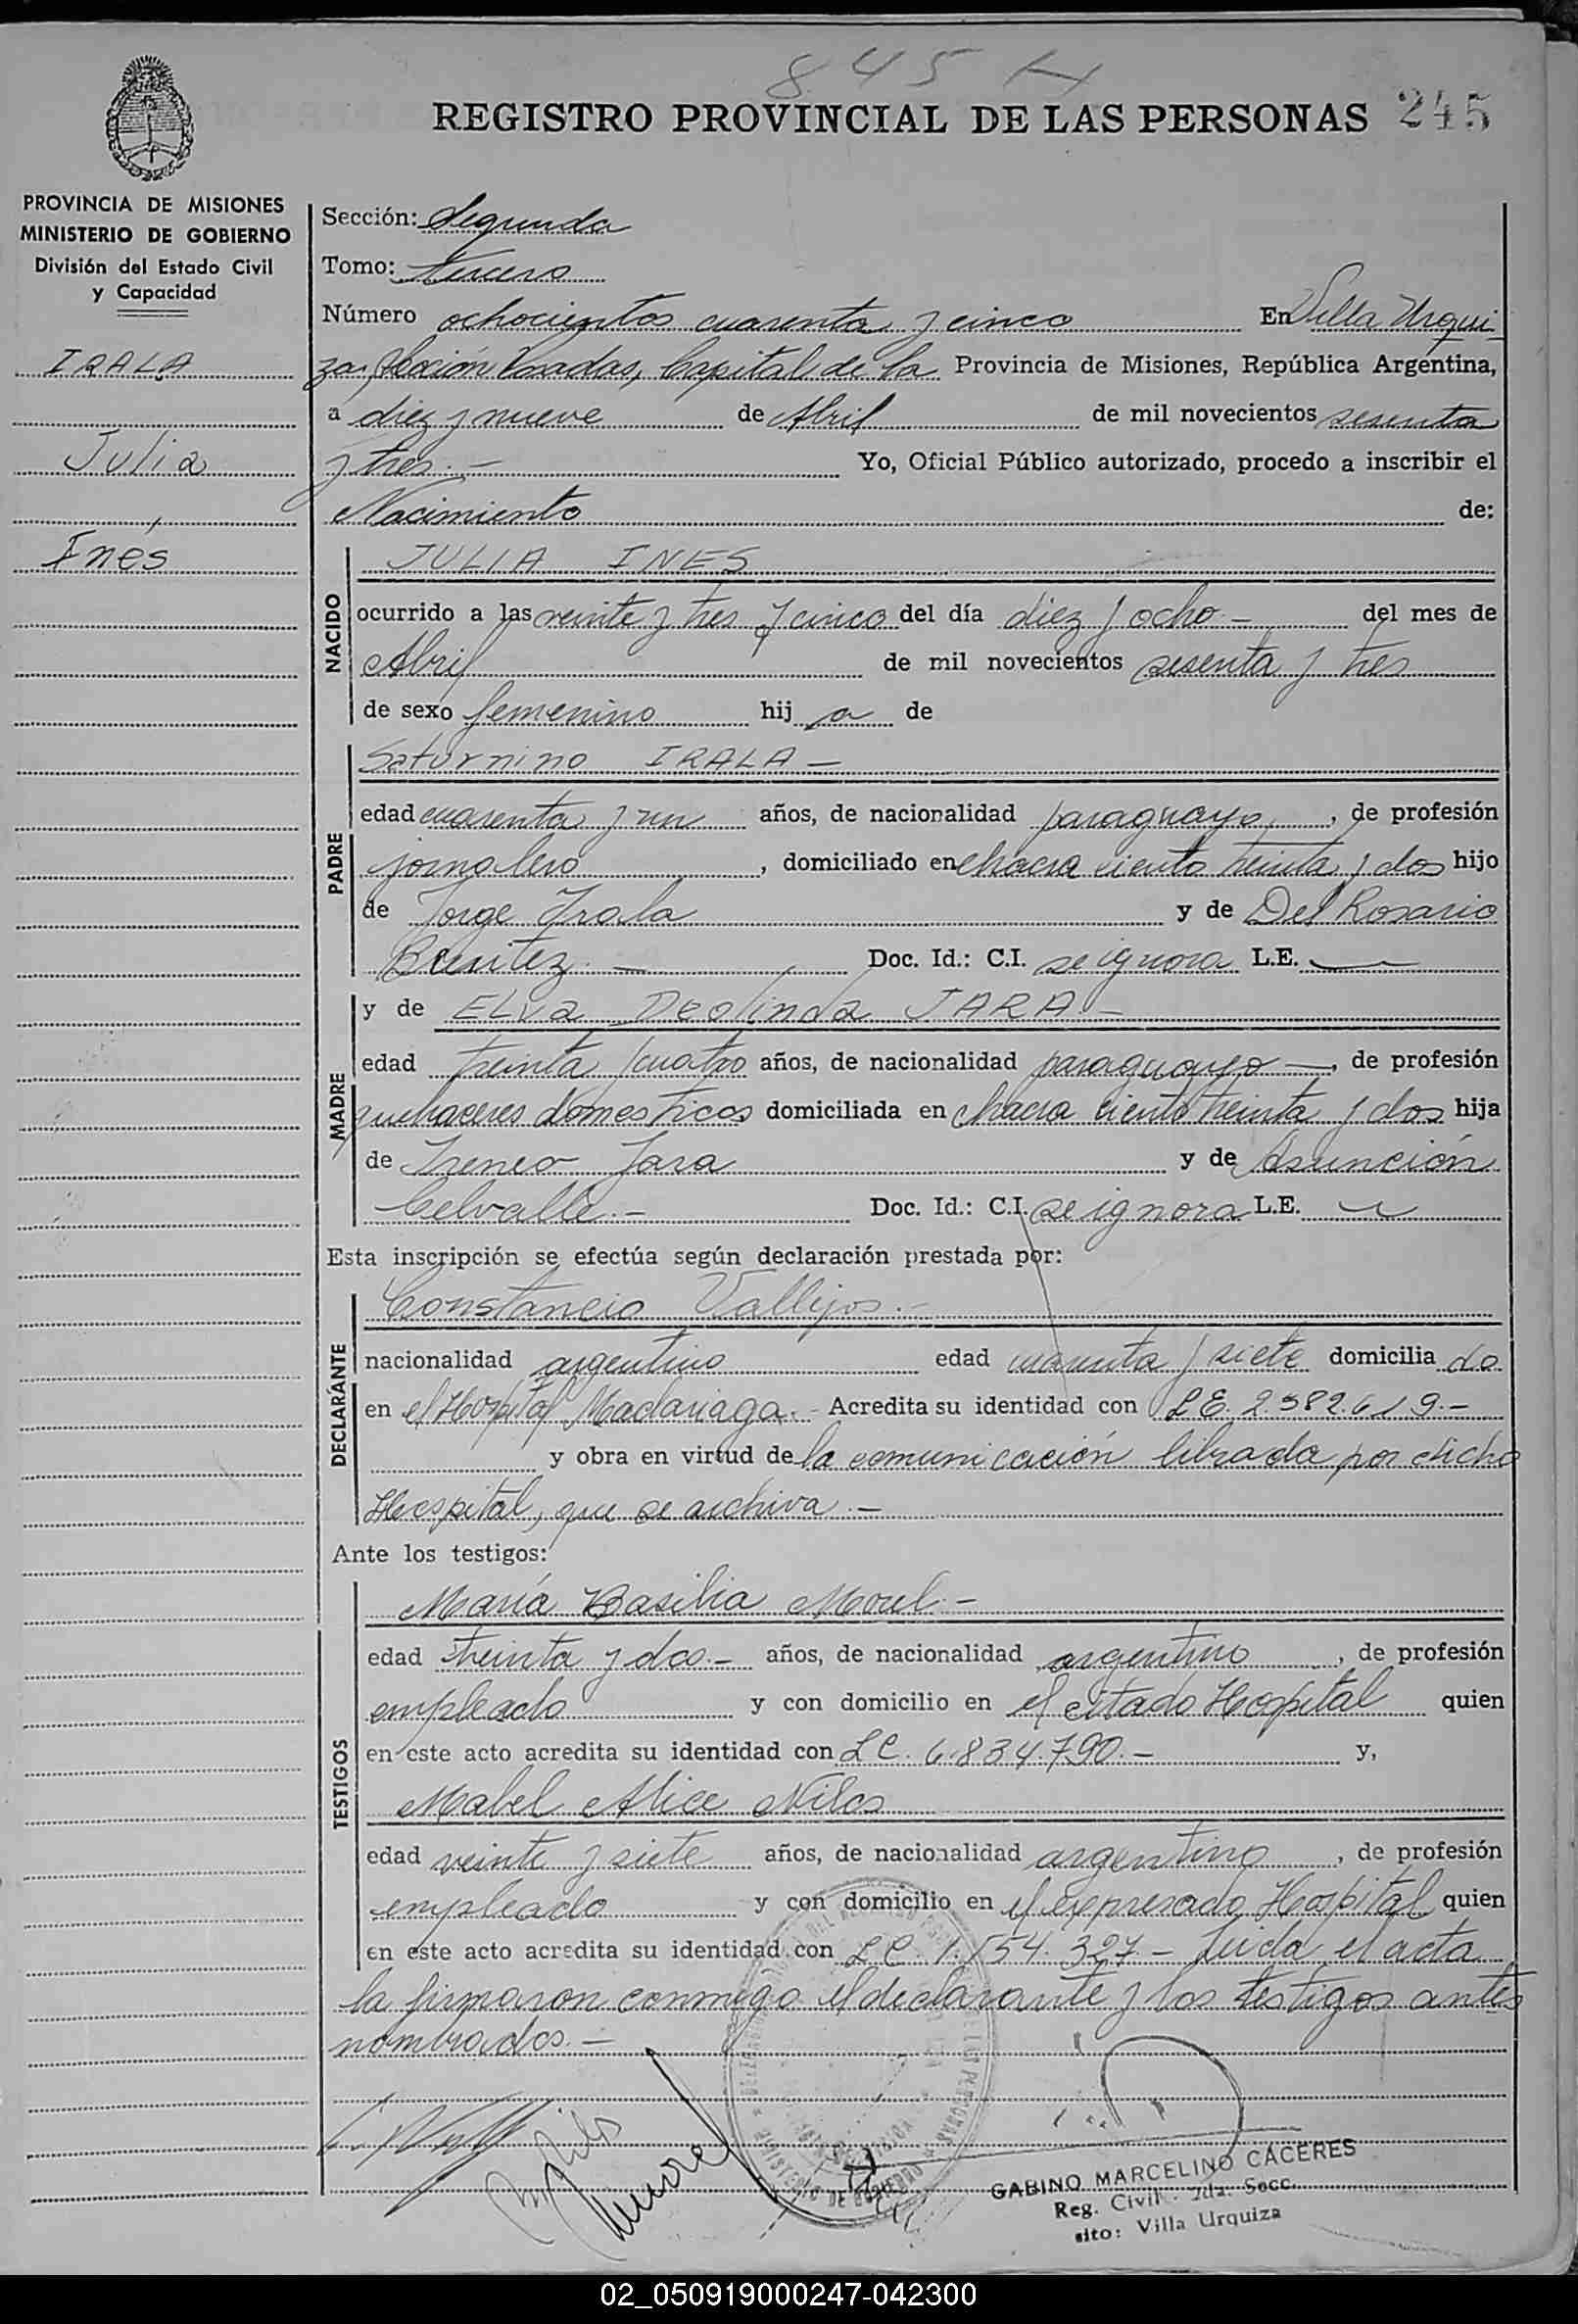 845
REGISTRO PROVINCIAL DE LAS PERSONAS 245
PROVINCIA DE MISIONES
MINISTERIO DE GOBIERNO
División del Estado Civil
y Capacidad
IRALA
Julia
Inés
Sección: Segunda
Tomo: tercero
Número ochocientos cuarenta y cinco En Villa Urqui
za, Sección Posadas, Capital de la Provincia de Misiones, República Argentina,
a diez y nueve de Abril de mil novecientos sesenta
y tres.- Yo, Oficial Público autorizado, procedo a inscribir el
Nacimiento de:
NACIDO
JULIA INES
ocurrido a las veinte y tres y cinco del día diez y ocho.- del mes de
Abril de mil novecientos sesenta y tres
de sexo femenino hij a de
PADRE
Saturnino IRALA -
edad cuarenta y un años, de nacionalidad paraguaya, de profesión
jornalero, domiciliado en chacra ciento treinta y dos hijo
de Jorge Irala y de Del Rosario
Benitez.- Doc. Id.: C.I. se ignora L.E. —
MADRE
y de ELVa Deolinda JARA.-
edad treinta y cuatro años, de nacionalidad paraguayo -, de profesión
quehaceres domesticos domiciliada en chacra ciento treinta y dos hija
de Ireneo Jara y de Asunción
Celvalle.- Doc. Id.: C.I. se ignora L.E. —
Esta inscripción se efectúa según declaración prestada por:
DECLARANTE
Constancio Vallejos.-
nacionalidad argentino edad cuarenta y siete domicilia do
en el Hospital Madariaga.- Acredita su identidad con LE. 2.382.619.-
y obra en virtud de la comunicación librada por dicho
Hospital, que se archiva.-
Ante los testigos:
TESTIGOS
María Basilia Morel.-
edad treinta y dos.- años, de nacionalidad argentino, de profesión
empleado y con domicilio en el citado Hospital quien
en este acto acredita su identidad con LC. 6.834.790.- y,
Mabel Alice Nilos
edad veinte y siete años, de nacionalidad argentino, de profesión
empleado y con domicilio en el expresado Hospital quien
en este acto acredita su identidad con LC. 1.154.327.- Leida el acta
la firmaron conmigo el declarante y los testigos antes
nombrados.-
GABINO MARCELINO CACERES
Reg. Civil. 2da. Secc.
sito: Villa Urquiza
02_050919000247-042300